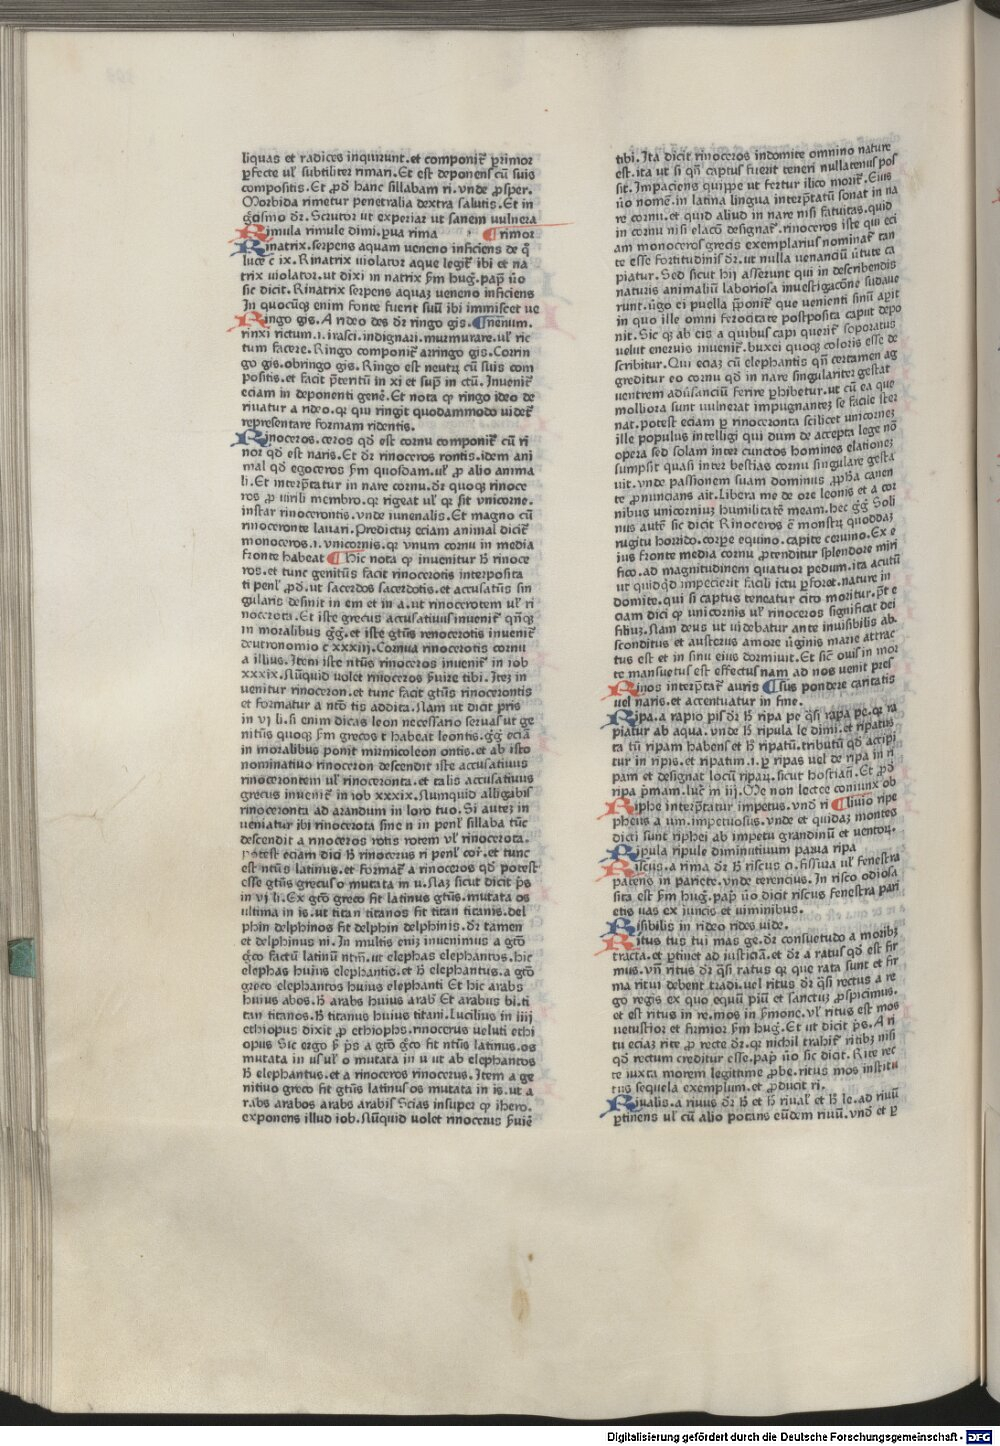 liquas et radices inquirunt.et componit᷑ p̲rimor
p̲fecte ul᷑ subtiliter rimari. Et est deponens cū suis
compositis. Et ꝓd᷑ hanc sillabam ri. vnde ꝓsper.
Morbida rimetur penetralia dextra salutis. Et in
gͣꝺsmo dr̄. Scrutor ut experiar ut sanem uulnera
Rimula rimule dimi. parua rima ¶ rimor
Rinatrix.serpens aquam ueneno inficiens de qͣ
luce c ix. Rinatrix uiolator aque legit᷑ ibi et na
trix uiolator.ut dixi in natrix ẜm hug᷑. pap̄ ūo
sic dicit. Rinatrix serpens aquaȝ ueneno inficiens
In quocūqȝ enim fonte fuerit suū ibi immiscet ue
Ringo gis. A rideo des dr̄ ringo gis. ¶ nenum.
rinxi rictum.i. irasci.indignari.murmurare.ul᷑ ric
tum facere. Ringo componit᷑ arringo gis. Corrin
go gis.obringo gis. Ringo est neutrȝ cū suis com
positis.et facit p̄teritū in xi et sup̄ in ctū. Inuenit᷑
eciam in deponenti gene᷑. Et nota ꝙ ringo ideo de
riuatur a rideo.qꝛ qui ringit quodammodo uidet᷑
representare formam ridentis.
Rinoceros.ceros qd᷑ est cornu componit᷑ cū ri
nor qd᷑ est naris. Et dr̄ rinoceros rontis.idem ani
mal qd᷑ egoceros ẜm quosdam.ul᷑ ꝓ alio anima
li. Et interp̄tatur in nare cornu.dr̄ quoqȝ rinoce
ros ꝓ uirili membro.qꝛ rigeat ul᷑ qꝛ sit vnicorne.
instar rinocerontis.vnde iuuenalis. Et magno cū
rinoceronte lauari. Predictuȝ eciam animal dicit᷑
monoceros.i. vnicornis.qꝛ vnum cornu in media
fronte habeat ¶ hic nota ꝙ inuenitur h̄ rinoce
ros.et tunc genitiūs facit rinocerotis interposita
ti penl᷑ ꝓd᷑.ut sacerdos sacerdotis.et accusatiūs sin
gularis desinit in em et in a.ut rinocerotem ul᷑ ri
nocerota. Et iste grecus accusatiuus inuenit᷑ qn̄qȝ
in moralibus gͣg᷑.et iste gt̄ūs renocerotis inuenit᷑
deutronomio c xxxiij. Cornua rinocerotis cornu
a illius. Item iste nt̄ūs rinoceros inuenit᷑ in iob
xxxix. Nūquid uolet rinoceros ẜuire tibi. Iteȝ in
uenitur rinoceron.et tunc facit gt̄ūs rinocerontis
et formatur a ntō tis addita. Nam ut dicit pris
in vj li. si enim dicas leon necessario seruas ut ge
nitūs quoqȝ ẜm grecos t habeat leontis. gͣg᷑ eciā
in moralibus ponit mirmicoleon ontis.et ab isto
nominatiuo rinoceron descendit iste accusatiuus
rinocerontem ul᷑ rinoceronta.et talis accusatiuus
grecus inuenit᷑ in iob xxxix. Numquid alligabis
rinoceronta ad arandum in loro tuo. Si auteȝ in
ueniatur ibi rinocerota sine n in penl᷑ sillaba tūc
descendit a rinoceros rotis rotem vl᷑ rinocerota.
potest eciam dici h̄ rinocerus ri penl᷑ cor᷑.et tunc
est nt̄ūs latinus.et format᷑ a rinoceros qd᷑ potest
esse gt̄ūs grecus o mutata in u. Naȝ sicut dicit p̄s
in vj li. Ex gtō greco fit latinus gt̄ūs.mutata os
ultima in is.ut titan titanos fit titan titanis.del
phin delphinos fit delphin delphinis.dr̄ tamen
et delphinus ni. In multis eniȝ inuenimus a gtō
gͣco factū latinū ntm̄.ut elephas elephantos.hic
elephas huius elephantis.et h̄ elephantus.a gtō
greco elephantos huius elephanti Et hic arabs
huius abos.h̄ arabs huius arab᷑ Et arabus bi.ti
tan titanos.h̄ titanus huius titani. Lucilius in iiij
ethiopus dixit ꝓ ethiophs.rinocerus ueluti ethi
opus Sic ergo ẜ p̄s a gtō gͣco fit nt̄ūs latinus.os
mutata in us ul᷑ o mutata in u ut ab elephantos
h̄ elephantus.et a rinoceros rinocerus. Item a ge
nitiuo greco fit gt̄ūs latinus os mutata in is.ut a
rabs arabos arabs arabis Scias insuper ꝙ ihero.
exponens illud iob. Nūquid uolet rinocerus ẜuiē
tibi. Ita dicit rinoceros indomite omnino nature
est.ita ut si qn̄ captus fuerit teneri nullatenus pos
sit. Impaciens quippe ut fertur ilico morit᷑. Eius
ūo nomē.in latina lingua interp̄tatū sonat in na
re cornu.et quid aliud in nare nisi fatuitas.quid
in cornu nisi elacō designat᷑. rinoceros iste qui eci
am monoceros grecis exemplarius nominat᷑ tan
te esse fortitudinis dr̄.ut nulla uenanciū ūtute ca
piatur. Sed sicut hij asserunt qui in describendis
naturis animaliū laboriosa inuestigacōne sudaue
runt.ūgo ei puella p̄ponit᷑ que uenienti sinū apit
in quo ille omni ferocitate postposita caput depo
nit. Sic qȝ ab eis a quibus capi querit᷑ soporatus
uelut eneruis inuenit᷑.buxei quoqȝ coloris esse de
scribitur. Qui eciaȝ cū elephantis qn̄ certamen ag
greditur eo cornu qd᷑ in nare singulariter gestat
uentrem adūsanciū ferire p̲hibetur.ut cū ea que
molliora sunt uulnerat impugnanteȝ se facile ster
nat.potest eciam p̲ rinoceronta scilicet unicorneȝ
ille populus intelligi qui dum de accepta lege nō
opera sed solam inter cunctos homines elationeȝ
sumpsit quasi inter bestias cornu singulare gesta
uit.vnde passionem suam dominus ꝓph̄a canen
te ꝓnuncians ait. Libera me de ore leonis et a cor
nibus unicorniuȝ humilitatē meam.hec gͣg᷑ Soli
nus autē sic dicit Rinoceros ē monstrȝ quoddaȝ
rugitu horrido.corpe equino.capite ceruino. Ex e
jus fronte media cornu ꝓtenditur splendore miri
fico.ad magnitudinem quatuor pedum.ita acutū
ut quidqd᷑ impecierit facili ictu p̲foret.nature in
domite.qui si captus teneatur cito moritur. p̄t e
ciam dici ꝙ unicornis ul᷑ rinoceros significat dei
filiuȝ. Nam deus ut uidebatur ante inuisibilis ab
sconditus et austerus amore ūginis marie attrac
tus est et in sinu eius dormiuit. Et sic᷑ ouis in mor
te mansuetus est effectus nam ad nos uenit pres
Rinos interp̄tat᷑ auris ¶ sus pondere caritatis
uel naris.et accentuatur in fine.
Ripa.a rapio pis dr̄ h̄ ripa pe.qͣsi rapa pe.qꝛ ra
piatur ab aqua.vnde h̄ ripula le dimi.et ripatus
ta tū ripam habens et h̄ ripatū.tributū qd᷑ accipi
tur in ripis.et ripatim.i. p̲ ripas uel de ripa in ri
pam et designat locū riparȝ.sicut hostiati᷑. Et ꝓd᷑
ripa p̄mam. luc᷑ in iij. Me non lecteē coniunx ob
Riphe interp̄tatur impetus.vnd᷑ ri ¶ liuio ripe
pheus a um.impetuosus.vnde et quidaȝ montes
dicti sunt riphei ab impetu grandinū et uentoꝝ.
Ripula ripule diminutiuum parua ripa
Riscus.a rima dr̄ h̄ riscus ci.fissura ul᷑ fenestra
patens in pariete.vnde terencius. In risco odiosa
sita est ẜm hug᷑.pap̄ ūo dicit riscus fenestra pari
etis uas ex iuncis et uiminibus.
Risibilis in rideo rides uide.
Ritus tus tui mas ge.dr̄ consuetudo a moribȝ
tracta.et p̲tinet ad justiciā.et dr̄ a ratus qd᷑ est fir
mus.vn̄ ritus dr̄ qͣsi ratus qꝛ que rata sunt et fir
ma ritui debent tradi.uel ritus dr̄ qͣsi rectus a re
go regis ex quo equū piū et sanctuȝ ꝓspicimus.
et est ritus in re.mos in ẜmone.vl᷑ ritus est mos
uetustior et firmior ẜm hug᷑. Et ut dicit p̄s. A ri
tu eciaȝ rite ꝓ recte dr̄.qꝛ nichil trahit᷑ ritibȝ nisi
qd᷑ rectum creditur esse. pap̄ ūo sic dic̄. Rite rec
te iuxta morem legittime ꝓbe.ritus mos institu
tus sequela exemplum.et ꝓducit ri.
Riualis.a riuus dr̄ h̄ et h̄ riual᷑ et h̄ le.ad riuū
p̲tinens ul᷑ cū alio potans eūdem riuū. vnd᷑ et p̲
Digitalisierung gefördert durch die Deutsche Forschungsgemeinschaft - DFG